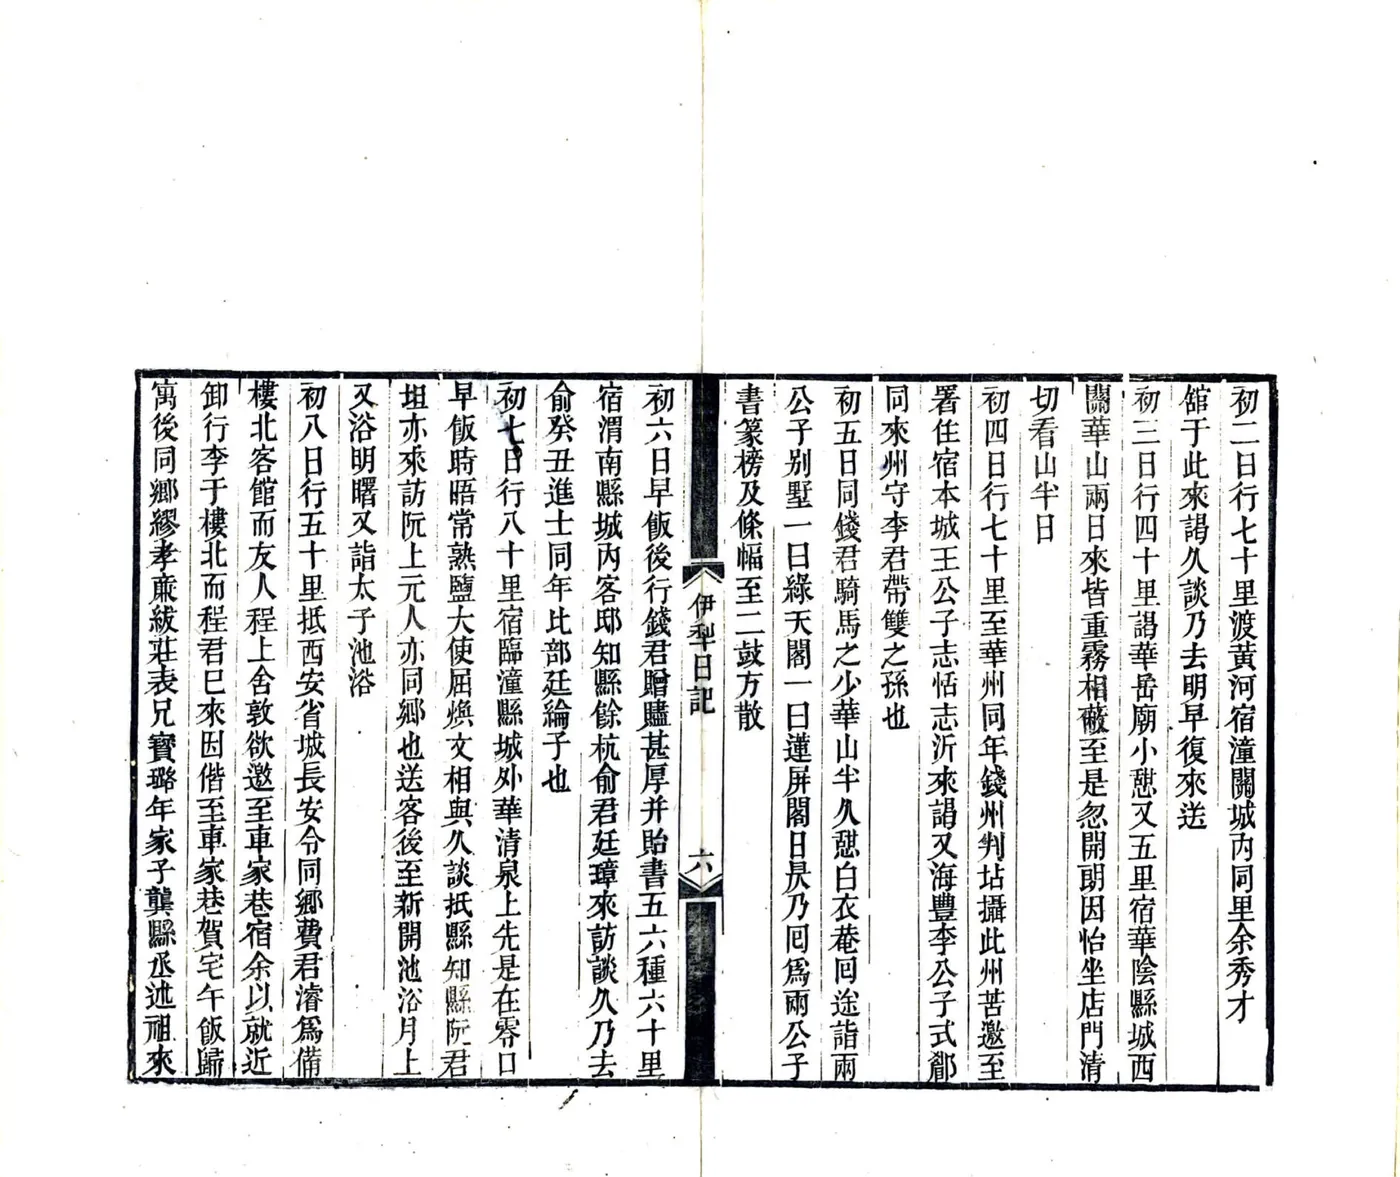 初二日行七十里渡黃河宿潼關城內同里余秀才
舘于此來謁久談乃去明早復來送
初三日行四十里謁華岳廟小憇又五里宿華陰縣城西
關華山兩日來皆重霧相蔽至是忽開朗因怡坐店門清
切看山半日
初四日行七十里至華州同年錢州判坫攝此州苦邀至
署住宿本城王公子志恬志沂來謁又海豐李公子式鄐
同來州守李君帶雙之孫也
初五日同錢君騎馬之少華山半久憇白衣菴囘途詣兩
公子別墅一曰綠天閣一曰蓮屏閣日昃乃囘爲兩公子
書篆榜及條幅至二鼓方散
伊犁日記
六
初六日早飯後行錢君贈贐甚厚并貽書五六種六十里
宿渭南縣城內客邸知縣餘杭俞君廷璋來訪談久乃去
俞癸丑進士同年比部廷綸子也
初七日行八十里宿臨潼縣城外華清泉上先是在零口
早飯時晤常熟鹽大使屈煥文相與久談抵縣知縣阮君
坦亦來訪阮上元人亦同鄉也送客後至新開池浴月上
又浴明曙又詣太子池浴
初八日行五十里抵西安省城長安令同鄉費君濬爲備
樓北客館而友人程上舍敦欲邀至車家巷宿余以就近
卸行李于樓北而程君已來因偕至車家巷賀宅午飯歸
寓後同鄉繆孝廉紱莊表兄寳璐年家子龔縣丞述祖來